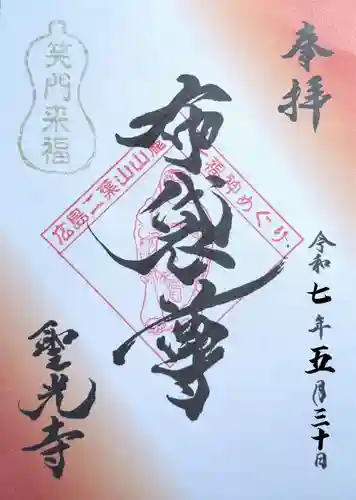 奉拝
笑門来福
布袋尊
広島二葉山山麓七福神めぐり
令和七年五月三十日
聖光寺